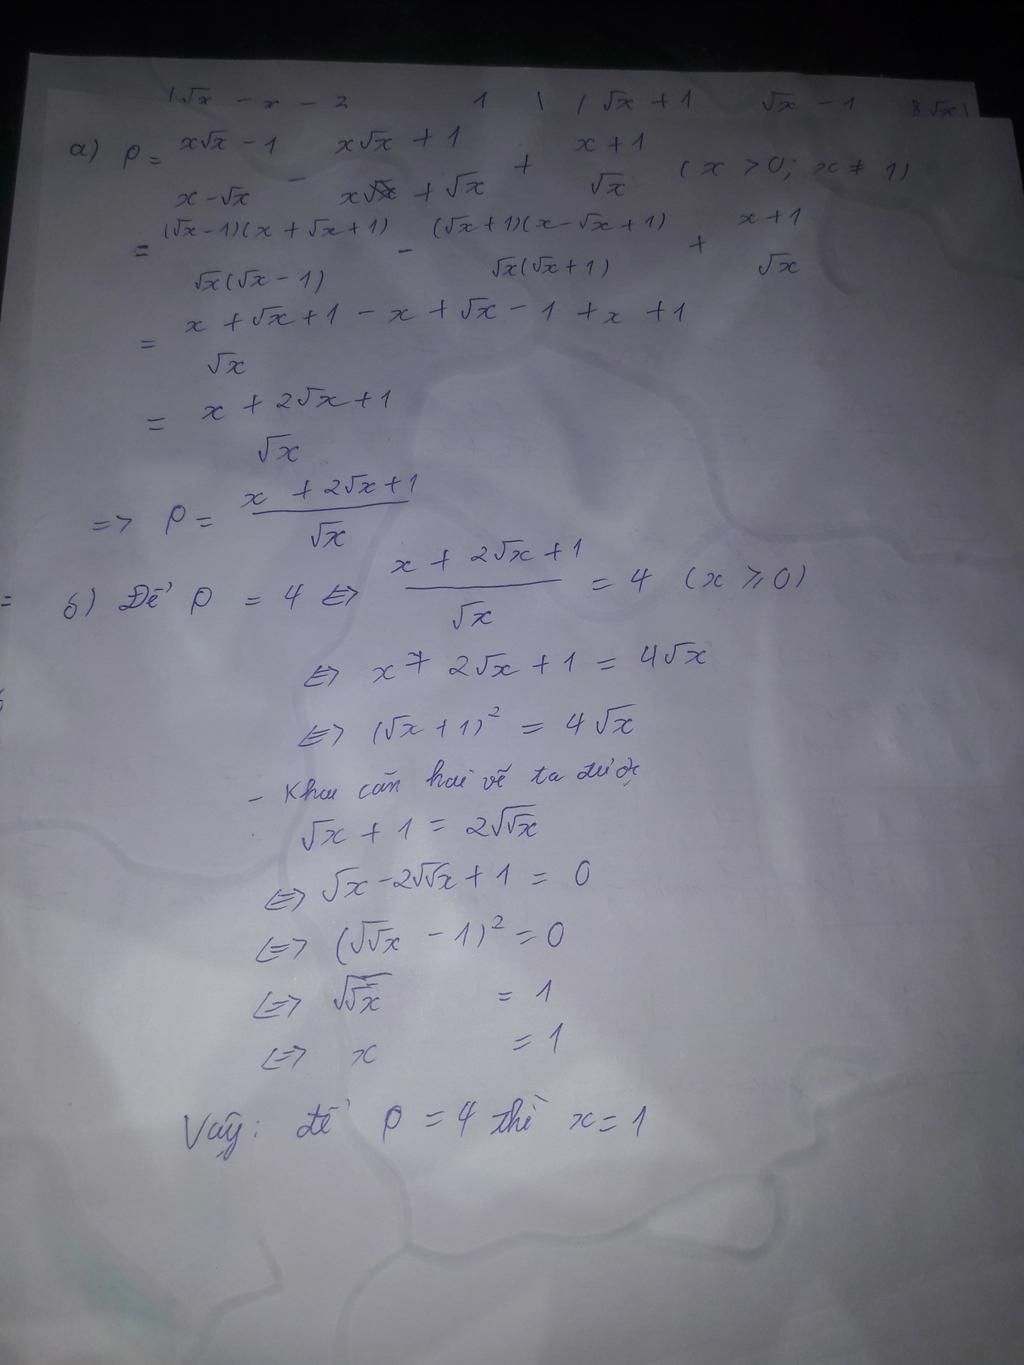 √x - x - 2 1 \ ( √x + 1 √x - 1 8√x \
a) P = x√x - 1 x√x + 1 x + 1
- + (x > 0; x ≠ 1)
x - √x x√x + √x √x
= (√x - 1)(x + √x + 1) - (√x + 1)(x - √x + 1) + x + 1
√x(√x - 1) √x(√x + 1) √x
= x + √x + 1 - x + √x - 1 + x + 1
√x
= x + 2√x + 1
√x
=> P = x + 2√x + 1
√x
b) Để P = 4 <=> x + 2√x + 1 = 4 (x ≥ 0)
√x
<=> x + 2√x + 1 = 4√x
<=> (√x + 1)² = 4√x
- Khai căn hai vế ta được
√x + 1 = 2√√x
<=> √x - 2√√x + 1 = 0
<=> (√√x - 1)² = 0
<=> √√x = 1
<=> x = 1
Vậy: để P = 4 thì x = 1